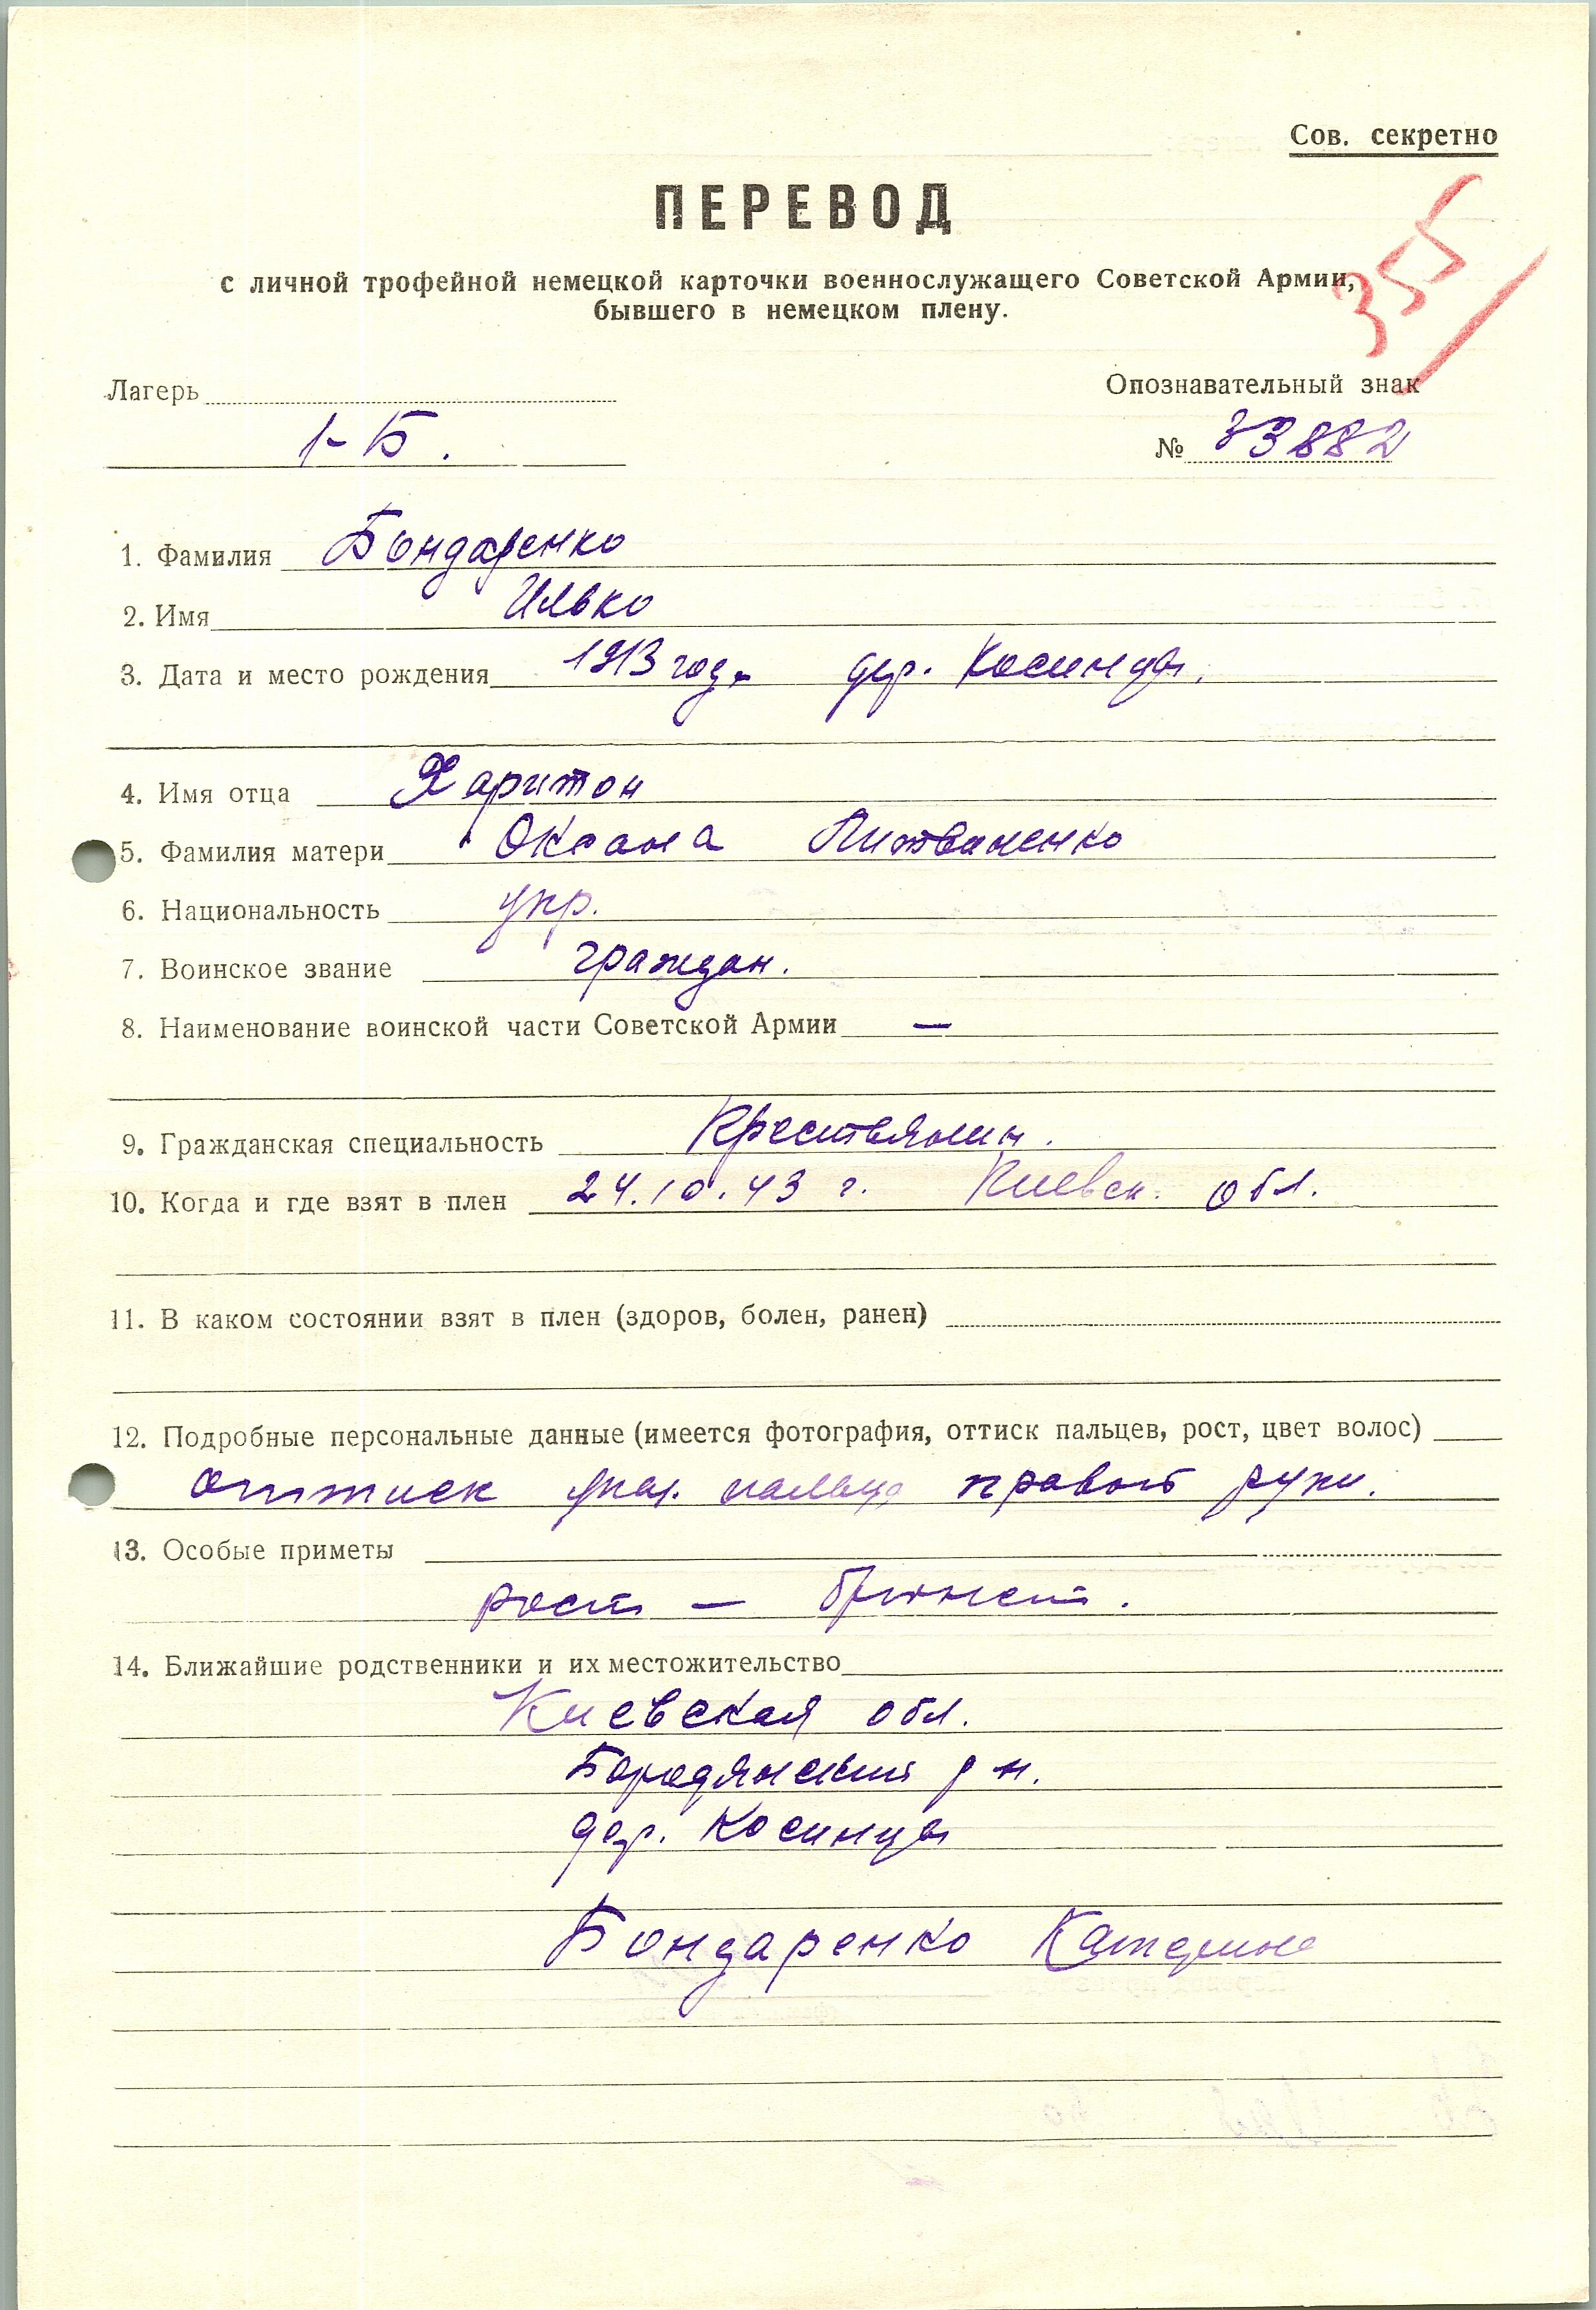 Сов. секретно
ПЕРЕВОД
355
с личной трофейной немецкой карточки военнослужащего Советской Армии,
бывшего в немецком плену.
Лагерь
Опознавательный знак
1-Б.
№ 33882
1. Фамилия Бондаренко
2. Имя Илько
3. Дата и место рождения 1913 год. дер. Косинцы.
4. Имя отца Харитон
5. Фамилия матери Оксана Литвиненко
6. Национальность укр.
7. Воинское звание граждан.
8. Наименование воинской части Советской Армии —
9. Гражданская специальность Крестьянин.
10. Когда и где взят в плен 24.10.43 г. Киевск. обл.
11. В каком состоянии взят в плен (здоров, болен, ранен)
12. Подробные персональные данные (имеется фотография, оттиск пальцев, рост, цвет волос)
оттиск указ. пальца правой руки.
13. Особые приметы
рост — брюнет.
14. Ближайшие родственники и их местожительство
Киевская обл.
Бородянский р-н.
дер. Косинцы
Бондаренко Катерина